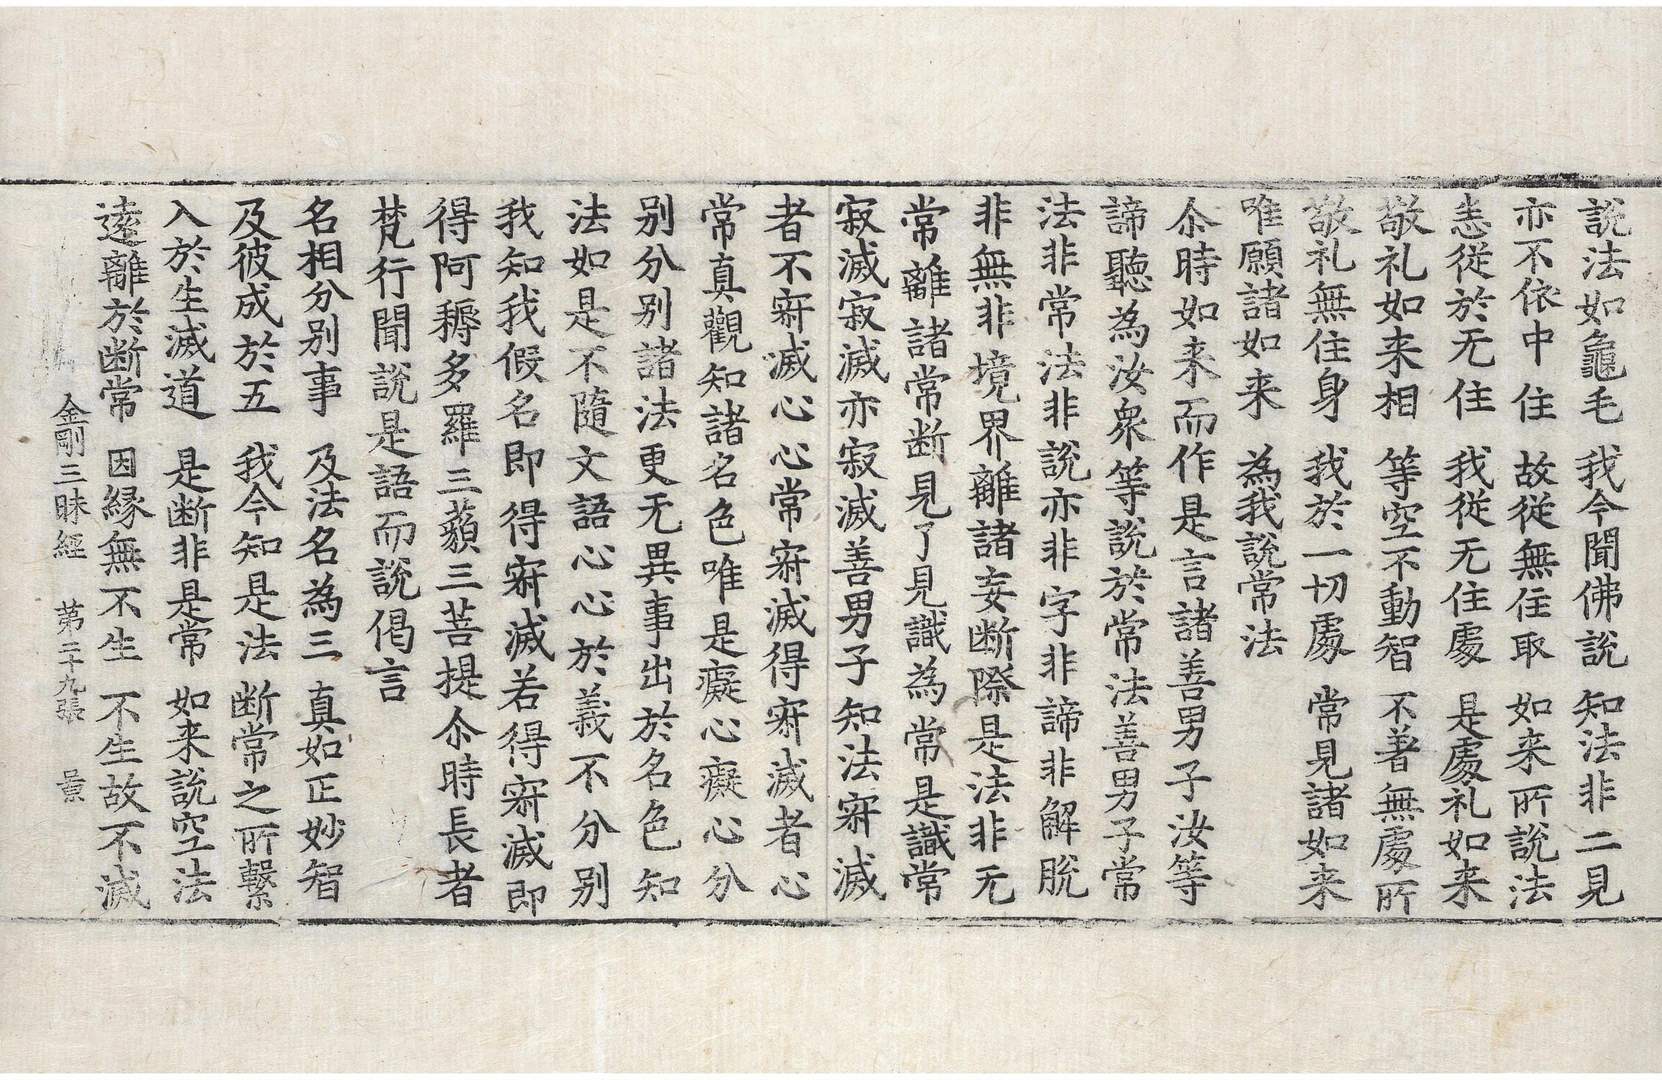 說法如龜毛 我今聞佛說 知法非二見
亦不依中住 故從無住取 如来所說法
悉從於无住 我從无住處 是處礼如来
敬礼如来相 等空不動智 不著無處所
敬礼無住身 我於一切處 常見諸如来
唯願諸如来 為我說常法
尒時如来而作是言諸善男子汝等
諦聽為汝衆等說於常法善男子常
法非常法非說亦非字非諦非解脫
非無非境界離諸妄断際是法非无
常離諸常断見了見識為常是識常
寂滅寂滅亦寂滅善男子知法㝛滅
者不㝛滅心心常㝛滅得㝛滅者心
常真觀知諸名色唯是癡心癡心分
別分別諸法更无異事出於名色知
法如是不隨文語心心於義不分別
我知我假名即得㝛滅若得㝛滅即
得阿耨多羅三藐三菩提尒時長者
梵行聞說是語而說偈言
名相分別事 及法名為三 真如正妙智
及彼成於五 我今知是法 断常之所繫
入於生滅道 是断非是常 如来說空法
遠離於断常 因緣無不生 不生故不滅
金剛三昧經 第二十九張